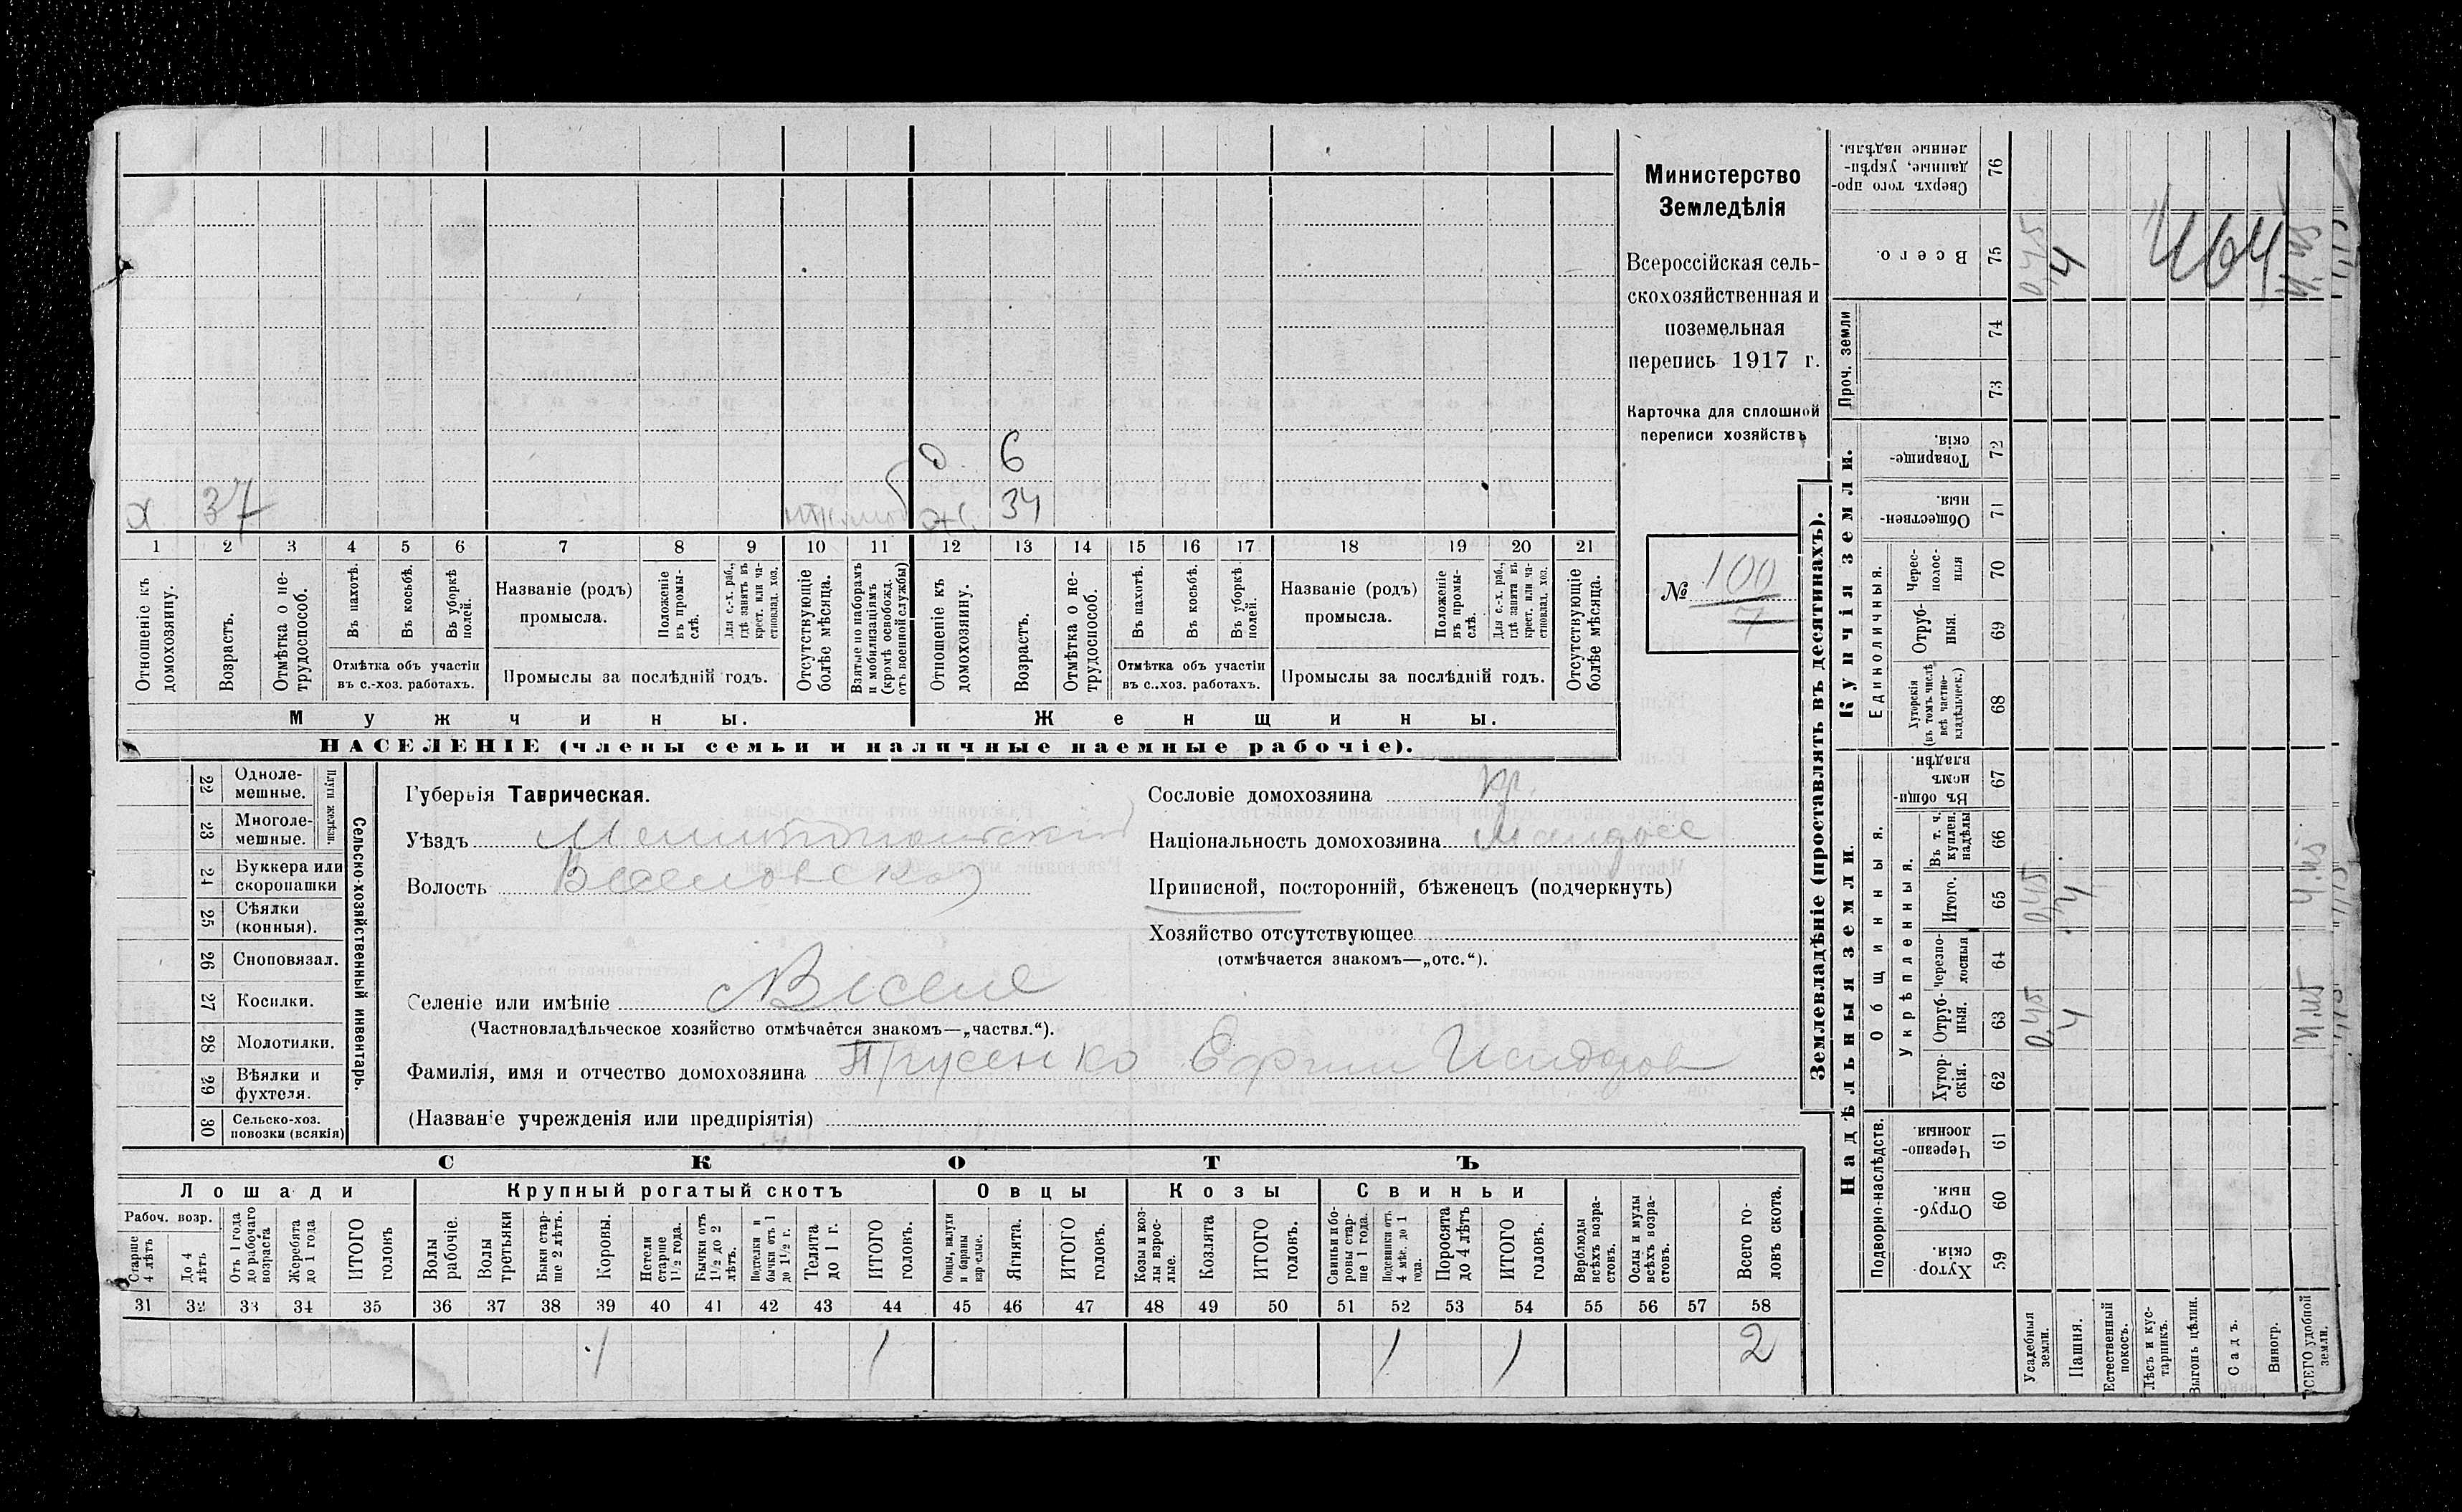 Министерство
Земледѣлія
Всероссійская сель-
скохозяйственная и
поземельная
перепись 1917 г.
Карточка для сплошной
переписи хозяйствъ
№ 100
7
О. 6
х 37
ж. 34
1 2 3 4 5 6 7 8 9 10 11 12 13 14 15 16 17 18 19 20 21
Отношеніе къ домохозяину.
Возрастъ.
Отмѣтка о не-трудоспособ.
Въ пахотѣ.
Въ косьбѣ.
Въ уборкѣ полей.
Отмѣтка объ участіи
въ с.-хоз. работахъ.
Названіе (родъ)
промысла.
Положеніе въ промы-слѣ.
Для с.-х. раб., гдѣ занятъ въ крест. или ча-стновлад. хоз.
Промыслы за послѣдній годъ.
Отсутствующіе болѣе мѣсяца.
Взятые по наборамъ и мобилизаціямъ (кромѣ освобожд. отъ военной службы)
Отношеніе къ домохозяину.
Возрастъ.
Отмѣтка о не-трудоспособ.
Въ пахотѣ.
Въ косьбѣ.
Въ уборкѣ полей.
Отмѣтка объ участіи
въ с..хоз. работахъ.
Названіе (родъ)
промысла.
Положеніе въ промы-слѣ.
Для с.-х. раб., гдѣ занята въ крест. или ча-стновлад. хоз.
Промыслы за послѣдній годъ.
Отсутствующіе болѣе мѣсяца.
Мужчины.
Женщины.
НАСЕЛЕНІЕ (члены семьи и наличные наемные рабочіе).
Сельско-хозяйственный инвентарь.
Плуги желѣзн.
22 Одноле-
мешные.
23 Многоле-
мешные.
24 Буккера или
скоропашки
25 Сѣялки
(конныя).
26 Сноповязал.
27 Косилки.
28 Молотилки.
29 Вѣялки и
фухтеля.
30 Сельско-хоз.
повозки (всякія)
Губернія Таврическая.
Уѣздъ Мелитопольский
Волость Веселовская
Селеніе или имѣніе с Веселе
(Частновладѣльческое хозяйство отмѣчаётся знакомъ—„частвл.“).
Фамилія, имя и отчество домохозяина Прусенко Ефим Исидоров
(Названіе учрежденія или предпріятія)
Сословіе домохозяина кр.
Національность домохозяина малорос
Приписной, посторонній, бѣженецъ (подчеркнуть)
Хозяйство отсутствующее
(отмѣчается знакомъ—„отс.“).
СКОТЪ
Лошади
Крупный рогатый скотъ
Овцы
Козы
Свиньи
Рабоч. возр.
Старше 4 лѣтъ
До 4 лѣтъ
Отъ 1 года до рабочаго возраста
Жеребята до 1 года
ИТОГО головъ
Волы рабочіе.
Волы третьяки
Быки стар-ше 2 лѣтъ.
Коровы.
Нетели старше 1½ года.
Бычки отъ 1½ до 2 лѣтъ.
Подтелки и бычки отъ 1 до 1½ г.
Телята до 1 г.
ИТОГО головъ.
Овцы, валухи и бараны взрослые.
Ягнята.
ИТОГО головъ.
Козы и коз-лы взрос-лые.
Козлята
ИТОГО головъ.
Свиньи и бо-ровы стар-ше 1 года.
Подсвинки отъ 4 мѣс. до 1 года.
Поросята до 4 лѣтъ
ИТОГО головъ.
Верблюды всѣхъ возра-стовъ.
Ослы и мулы всѣхъ возра-стовъ.
Всего го-ловъ скота.
31 32 33 34 35 36 37 38 39 40 41 42 43 44 45 46 47 48 49 50 51 52 53 54 55 56 57 58
1 1 1 1 2
Землевладѣніе (проставлять въ десятинахъ).
Купчія земли.
Надѣльныя земли.
Проч. земли
Единоличныя.
Общинныя.
Укрѣпленныя.
Подворно-наслѣдств.
Сверхъ того про-данные, укрѣп-ленные надѣлы. 76
Всего. 75
74
73
Товарище-скія. 72
Обществен-ныя. 71
Черес-полос-ныя 70
Отруб-ныя. 69
Хуторскія (въ томъ числѣ всѣ частно-владѣльческ.) 68
Въ общи-номъ владѣн. 67
Въ т. ч. куплен. надѣлы 66
Итого. 65
Черезпо-лосныя 64
Отруб-ныя. 63
Хутор-скія. 62
Черезпо-лосныя. 61
Отруб-ныя. 60
Хутор-скія. 59
Усадебныя земли.
Пашня.
Естественный покосъ.
Лѣсъ и кус-тарникъ.
Выгонъ цѣлин.
Садъ.
Виногр.
ВСЕГО удобной земли.
0,45 0,45 0,45
4 4 4
464